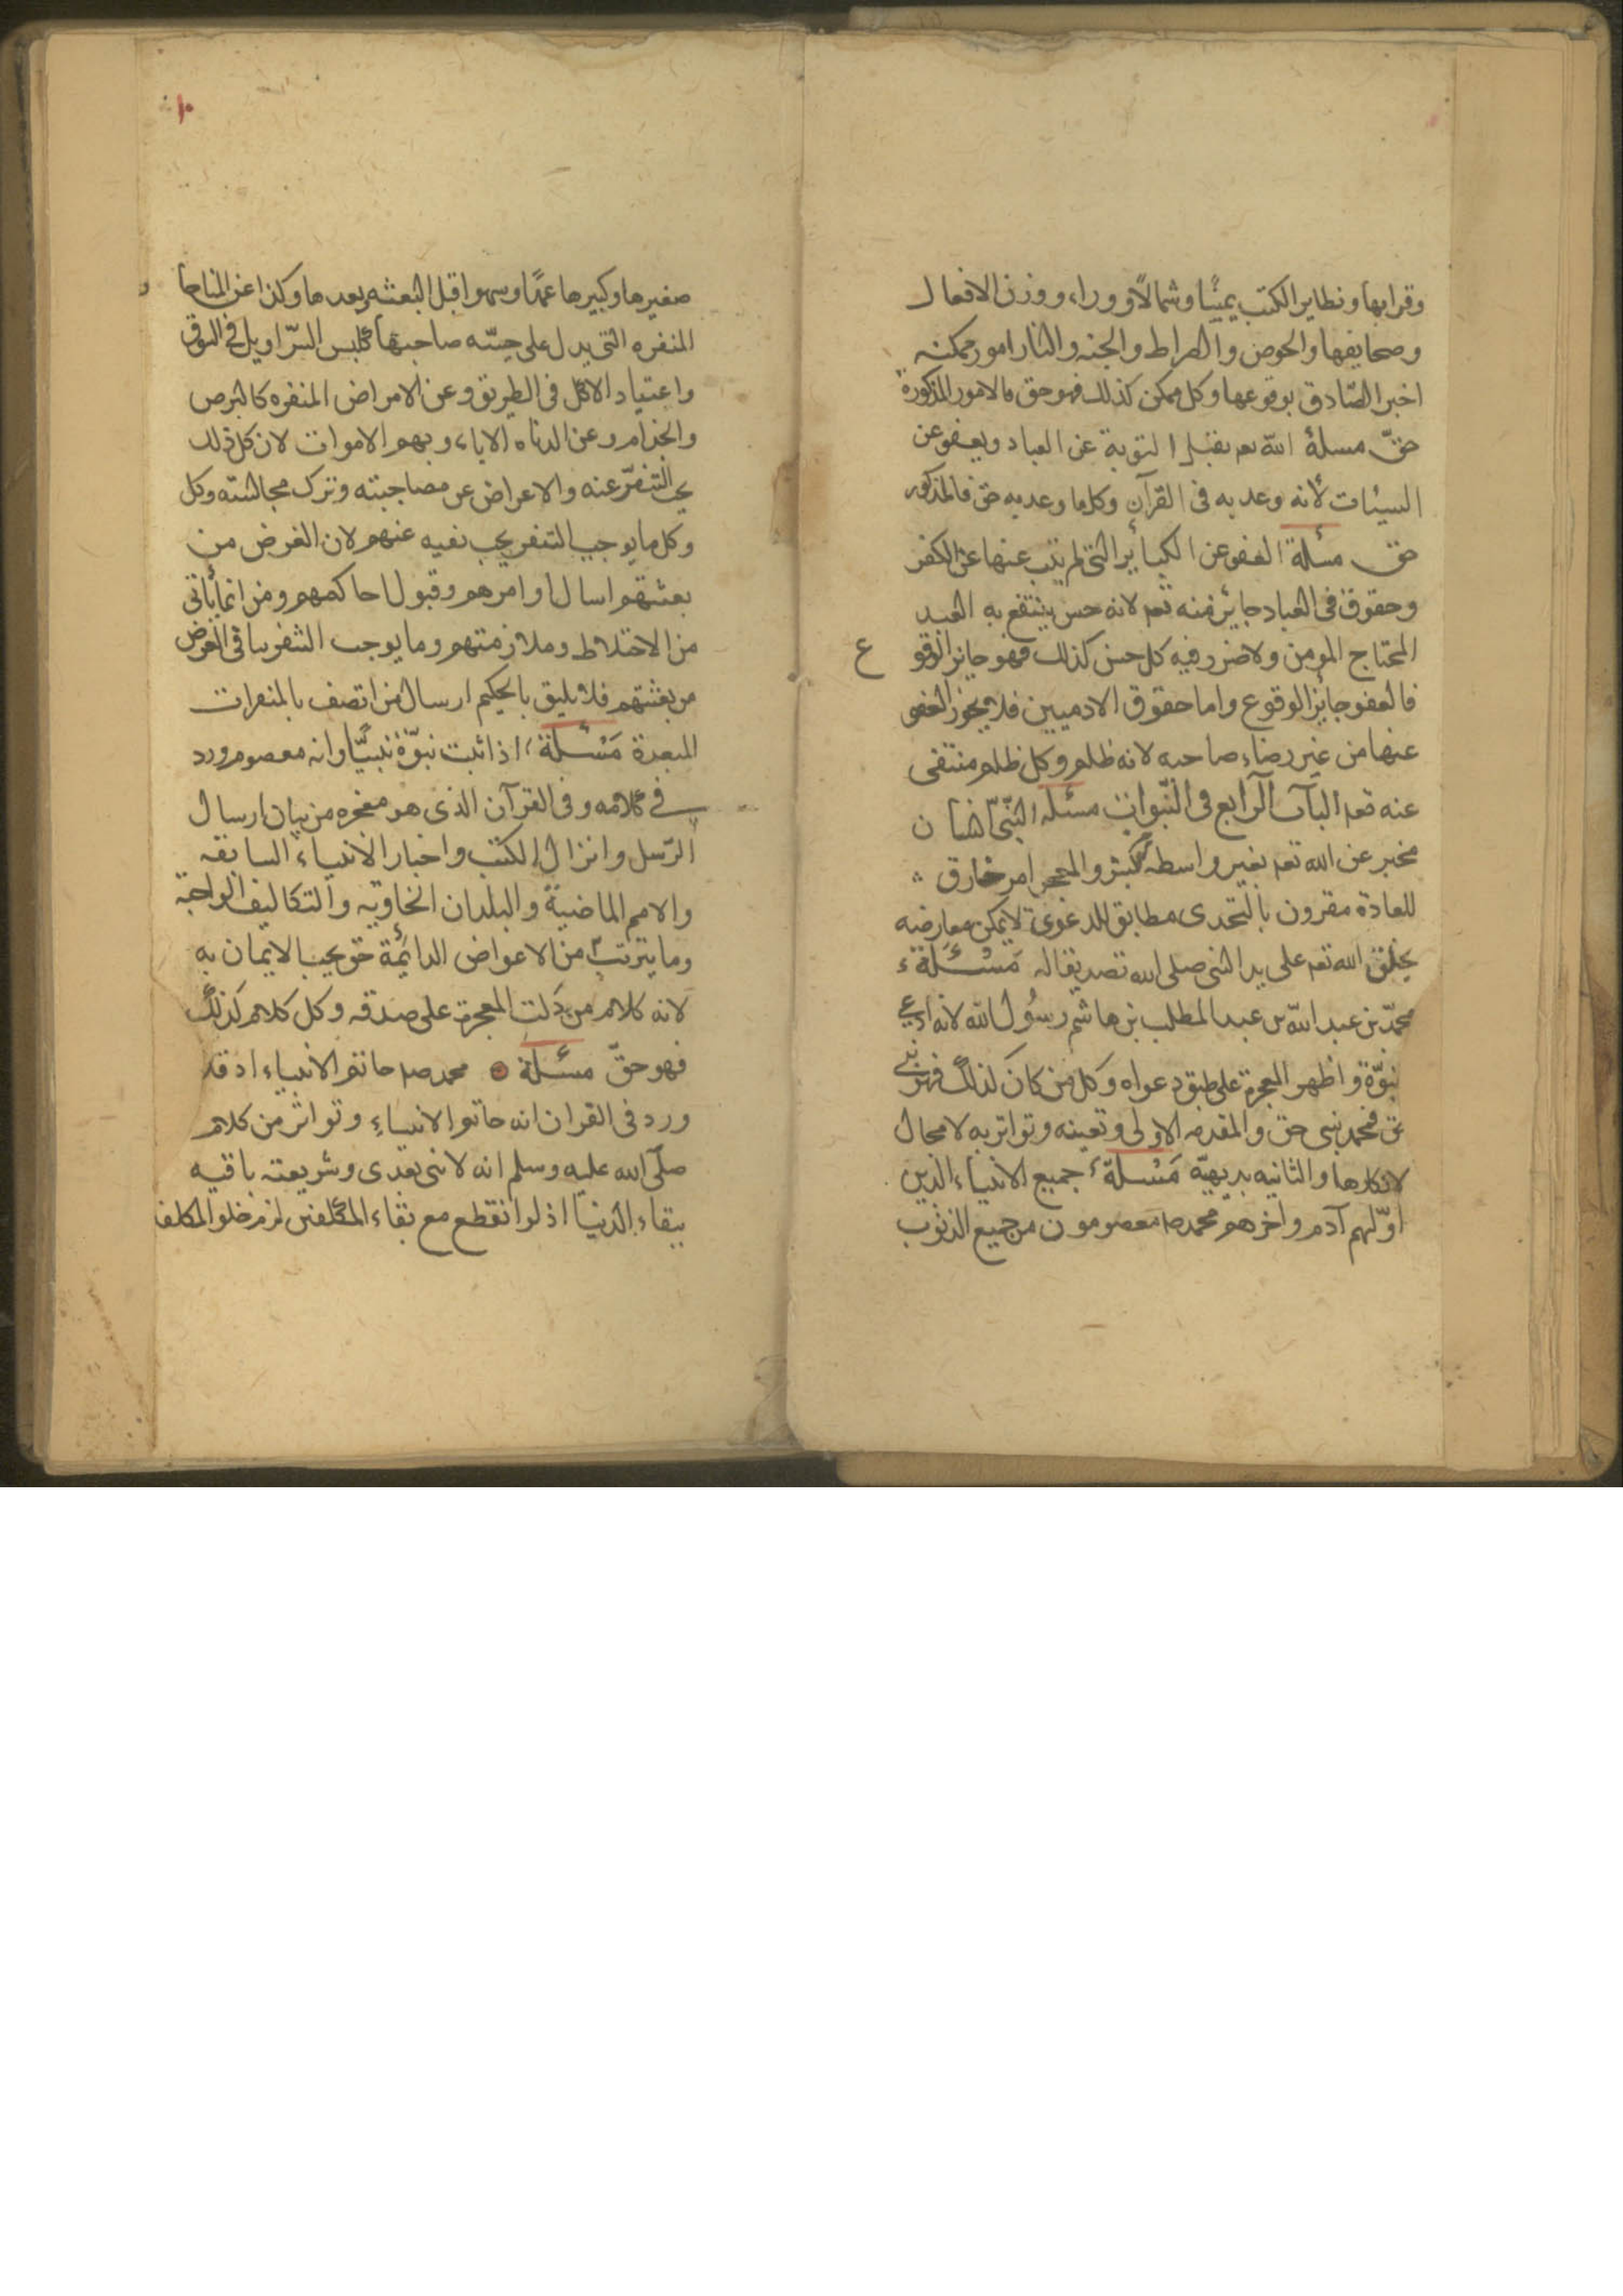 وقرابها ونطاير الكتب يمينًا وشمالًا ووراء ووزن الافعال
وصحايفها والحوض والصراط والجنه والنار امور ممكنه
اخبر الصّادق بوقوعها وكل ممكن كذلك فهو حق فالامور المذكورة
حقّ مسلة الله تعم يقبل التوبة عن العباد ويعفو عن
السيئات لأنه وعد به في القرآن وكلما وعد به حق فالمذكور
حق مسئلة العفو عن الكبائر التي لم يتب عنها عن الكفر
وحقوق في العباد جايز منه تعم لانه حسن ينتفع به العبد
المحتاج المومن ولا ضرر فيه كل حسن كذلك فهو جايز الوقوع
فالعفو جايز الوقوع واما حقوق الادميين فلا يجوز العفو
عنها من غير رضاء صاحبه لانه ظلم وكل ظلم منتفى
عنه تعم الباب الرابع في النّبوات مسئله النّبيّ انسان
مخبر عن الله تعم بغير واسطه بشر والمعجز امر خارق
للعادة مقرون بالتحدى مطابق للدعوى لا يمكن معارضه
يخلق الله تعم على يد النبى صلى الله تصديقا له مَسْئَلة
محمّد بن عبد الله بن عبد المطلب بن هاشم رسُول الله لانه ادعى
نبوّة واظهر المعجزة على طبق دعواه وكل من كان كذلك فهو نبى
حق فمحمد نبى حق والمقدمه الاولى وتعينه وتواتر به لا مجال
لانكارها والثانيه بديهيّة مَسْئلة جميع الانبياء الذين
اوّلهم آدم واخرهم محمد ص معصومون من جميع الذنوب
١٠
صغيرها وكبيرها عمدًا وسهوا قبل البعثه وبعدها وكذا عن المباحا
المنفره التي يدل على خسّه صاحبها كلبس السّراويل في السوق
واعتياد الاكل في الطريق وعن الامراض المنفره كالبرص
والجذام وعن الدناه الاباء وبهم الاموات لان كل ذلك
يجب التنفّر عنه والاعراض عن مصاحبته وترك مجالسته وكل
وكل ما يوجب التنفر يجب نفيه عنهم لان الغرض من
بعثتهم اسال اوامرهم وقبول احاكمهم ومن انما يأتى
من الاختلاط وملازمتهم وما يوجب التنفر ينافى الغرض
من بعثتهم فلا يليق بالحكيم ارسال من اتصف بالمنفرات
المبعدة مَسْئلة اذا ثبت نبوّة نبيّنا وانه معصوم ورد
في كلامه وفي القرآن الذي هو معجزه من بيان ارسال
الرّسل وانزال الكتب واخبار الانبياء السابقه
والامم الماضية والبلدان الخاويه والتكاليف الواجبة
وما يترتب من الاعواض الدائمة حق يجب الايمان به
لانه كلام من دَلت المعجزة على صدقه وكل كلام كذلك
فهو حقّ مسئلة محمد ص خاتم الانبياء اذ قد
ورد في القران انه خاتم الانبياء وتواتر من كلام
صلّى الله عليه وسلم انه لا نبى بعدى وشريعته باقيه
ببقاء الدنيا اذ لو انقطع مع بقاء المكلفين لزم خلو المكلف